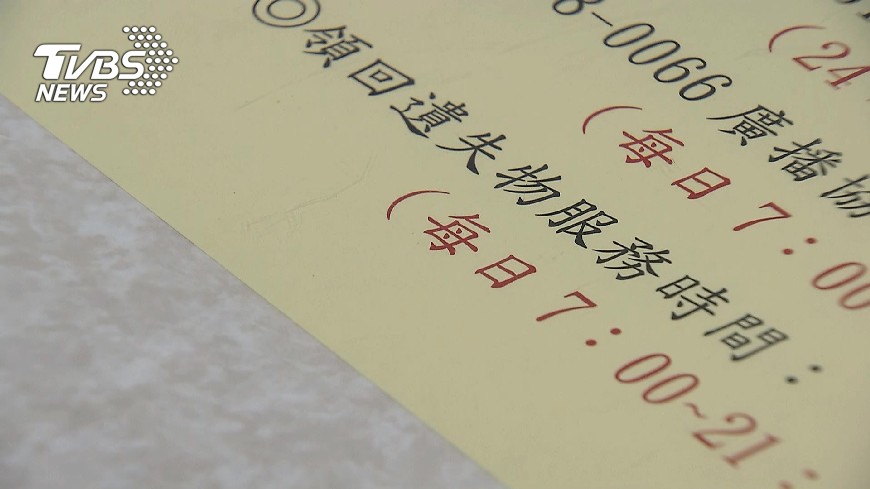 TVBS
NEWS
(24
-0066 廣播協
(每日 7:00
◎領回遺失物服務時間:
(每日 7:00~21: